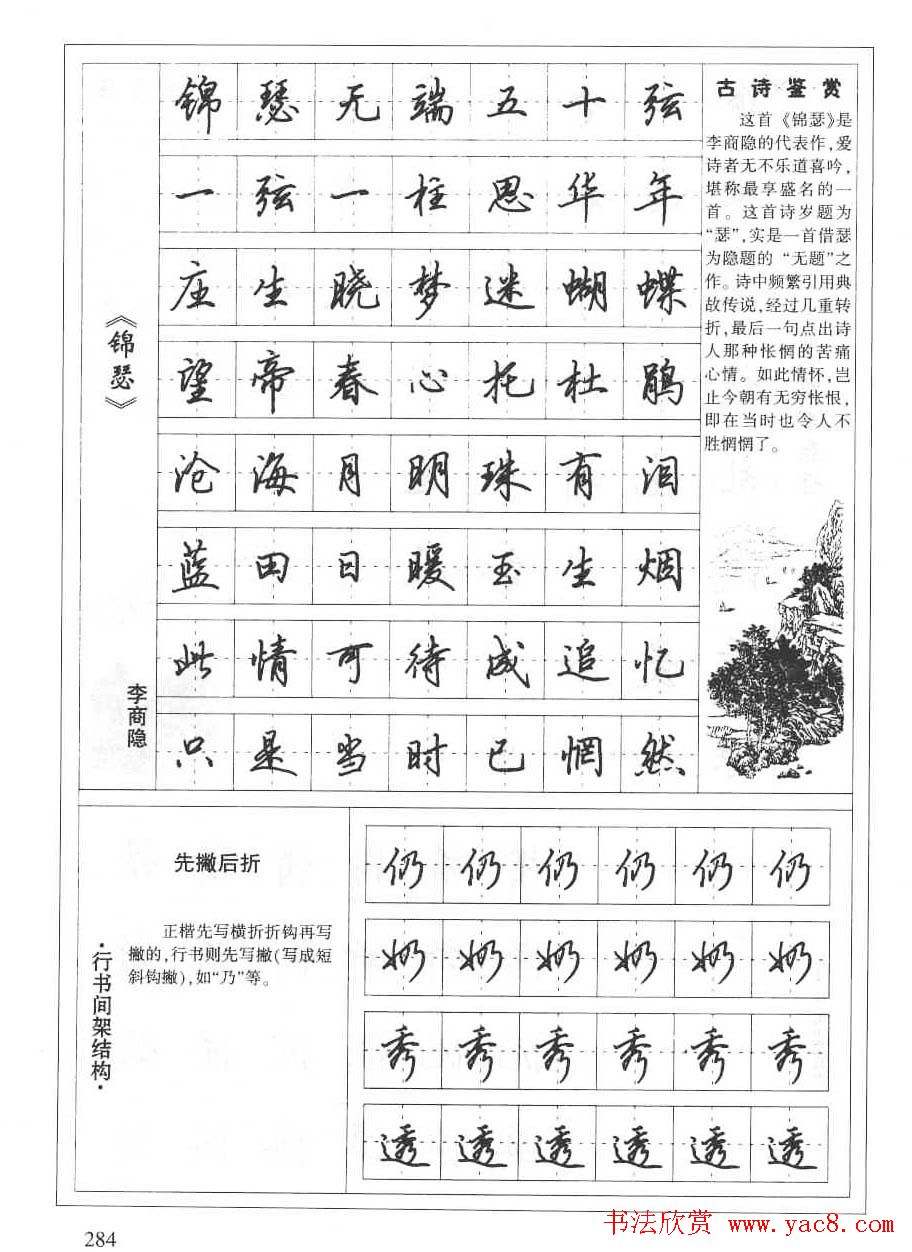 《锦瑟》
李商隐
锦瑟无端五十弦
一弦一柱思华年
庄生晓梦迷蝴蝶
望帝春心托杜鹃
沧海月明珠有泪
蓝田日暖玉生烟
此情可待成追忆
只是当时已惘然
古诗鉴赏
这首《锦瑟》是
李商隐的代表作,爱
诗者无不乐道喜吟,
堪称最享盛名的一
首。这首诗岁题为
“瑟”,实是一首借瑟
为隐题的“无题”之
作。诗中频繁引用典
故传说,经过几重转
折,最后一句点出诗
人那种怅惘的苦痛
心情。如此情怀,岂
止今朝有无穷怅恨,
即在当时也令人不
胜惘惘了。
·行书间架结构·
先撇后折
正楷先写横折折钩再写
撇的,行书则先写撇(写成短
斜钩撇),如“乃”等。
仍仍仍仍仍仍
奶奶奶奶奶奶
秀秀秀秀秀秀
透透透透透透
284
书法欣赏 www.yac8.com